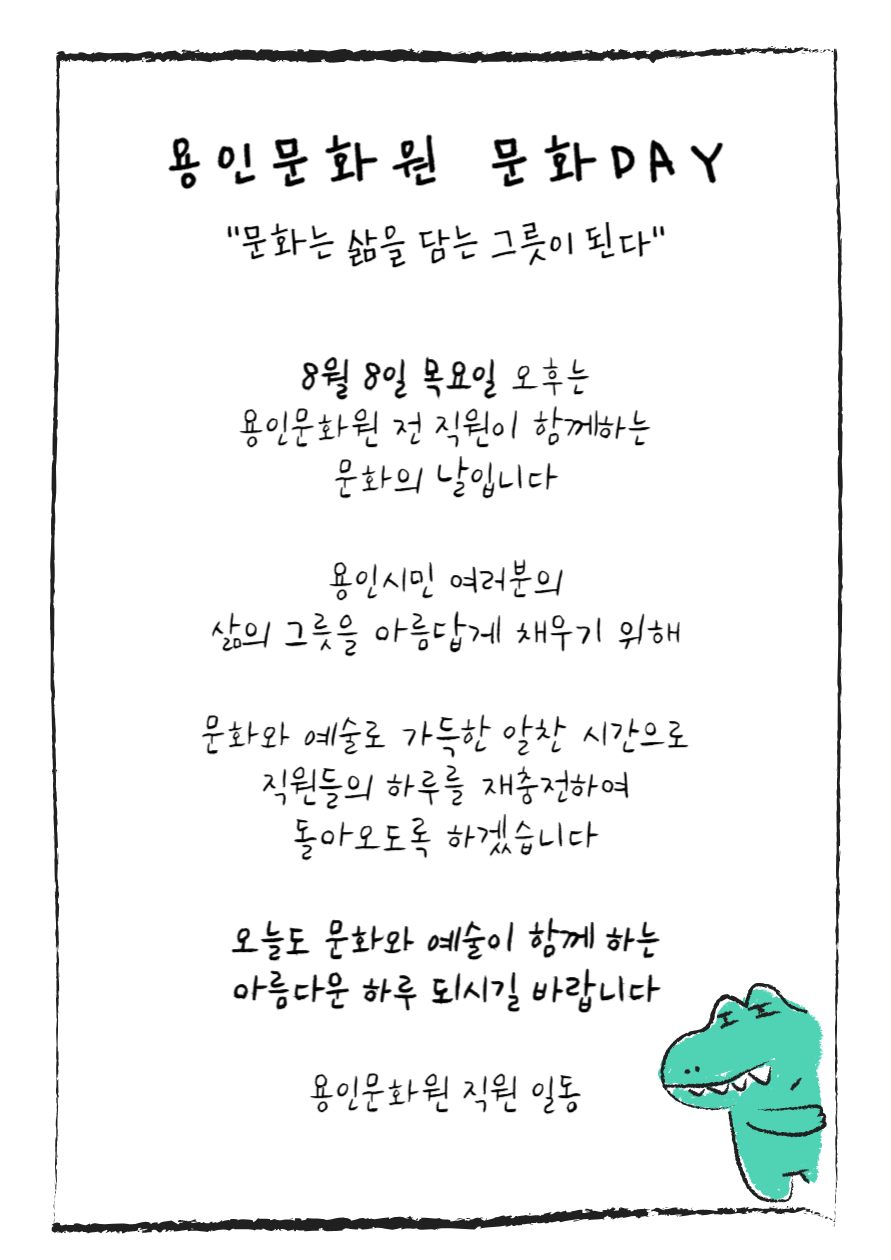 용인문화원 문화DAY
"문화는 삶을 담는 그릇이 된다"
8월 8일 목요일 오후는
용인문화원 전 직원이 함께하는
문화의 날입니다
용인시민 여러분의
삶의 그릇을 아름답게 채우기 위해
문화와 예술로 가득한 알찬 시간으로
직원들의 하루를 재충전하여
돌아오도록 하겠습니다
오늘도 문화와 예술이 함께 하는
아름다운 하루 되시길 바랍니다
용인문화원 직원 일동